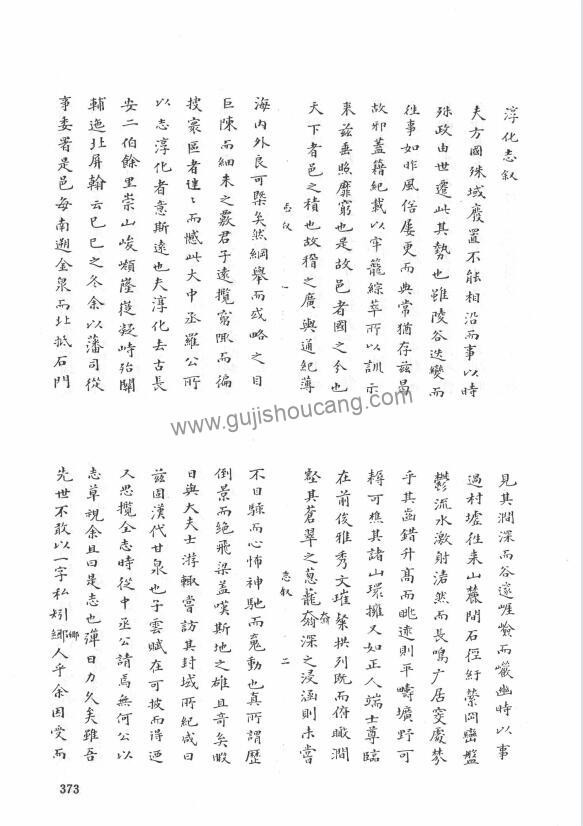 淳化志叙
夫方國殊域廢置不能相沿而事以時
殊政由世遷此其勢也雖陵谷迭變而
往事如昨風俗屢更而典常猶存玆曷
故邪蓋籍紀載以牢籠綜萃所以訓示
来玆垂照靡窮也是故邑者國之分也
天下者邑之積也故稽之廣輿通紀薄
志叙 一
海内外良可槩矣然綱舉而或略之目
巨陳而細未之覈君子遠攬窮陬而徧
披寰區者連〻而憾此大中丞羅公所
以志淳化者意斯遠也夫淳化去古長
安二伯餘里崇山峻巔隆嶷凝峙殆關
輔迤北屏翰云巳巳之冬余以藩司從
事委署是邑每南遡金泉而北抵石門
見其澗深而谷邃崕嶮而巘幽時以事
過村墟往来山麓間石徑紆縈岡巒盤
鬱流水激射渃然而長鳴广居窔處棼
乎其齒錯升高而眺逺則平疇壙野可
耨可樵其諸山環擁又如正人端士尊臨
在前俊雅秀文璀粲拱列既而俯瞰澗
壑其蒼翠之蔥蘢奫深之浸涵則未嘗
奫
志叙 二
不目駴而心怖神馳而䰟動也真所謂歷
倒景而絶飛梁盖嘆斯地之雄且奇矣暇
日與大夫士游輙嘗訪其封域所紀咸曰
玆固漢代甘泉也子雲賦在可披而得迺
又思攬全志時從中丞公請焉無何公以
志草視余且曰是志也殫日力久矣雖吾
先世不敢以一字私矧鄉人乎余因受而
鄉
373
www.gujishoucang.com